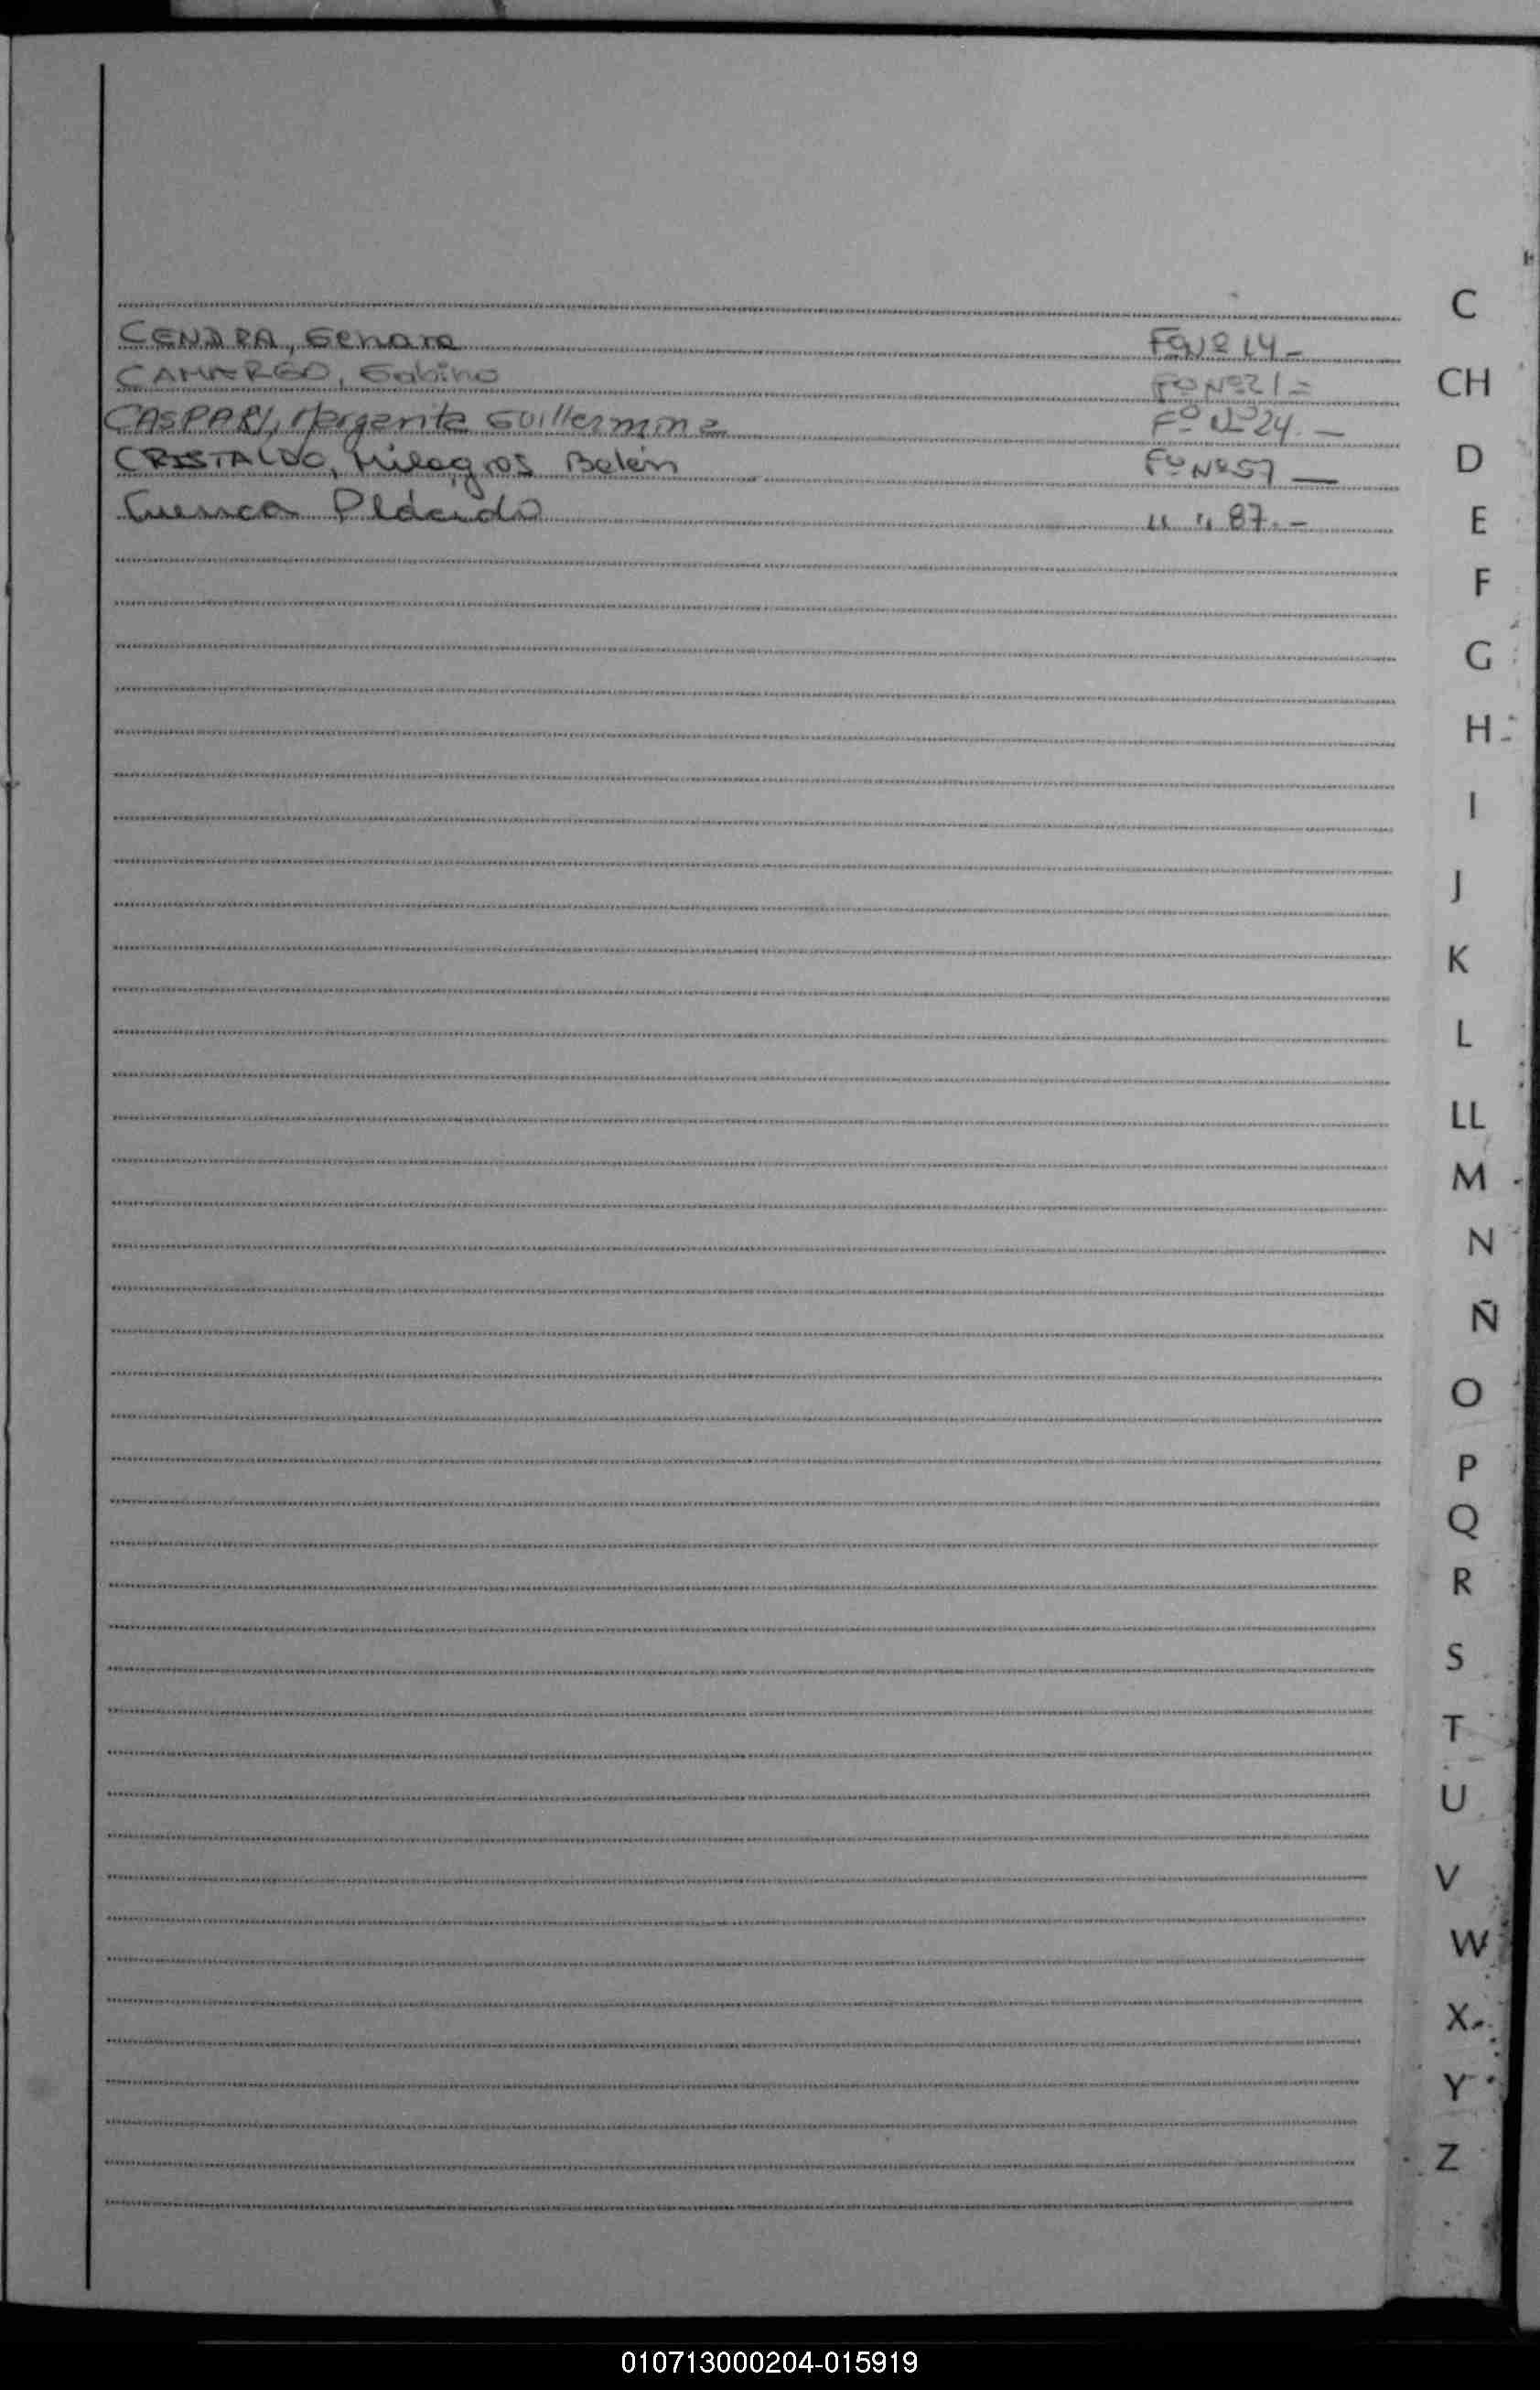 C
CENDRA, Genara Fº Nº 14 -
CAMARGO, Gabino Fº Nº 21 =
CH
CASPARY, Margarita Guillermina Fº Nº 24 -
CRISTALDO, Milagros Belén Fº Nº 57 —
D
Cuenca Plácido " " 87. -
E
F
G
H
I
J
K
L
LL
M
N
Ñ
O
P
Q
R
S
T
U
V
W
X
Y
Z
010713000204-015919